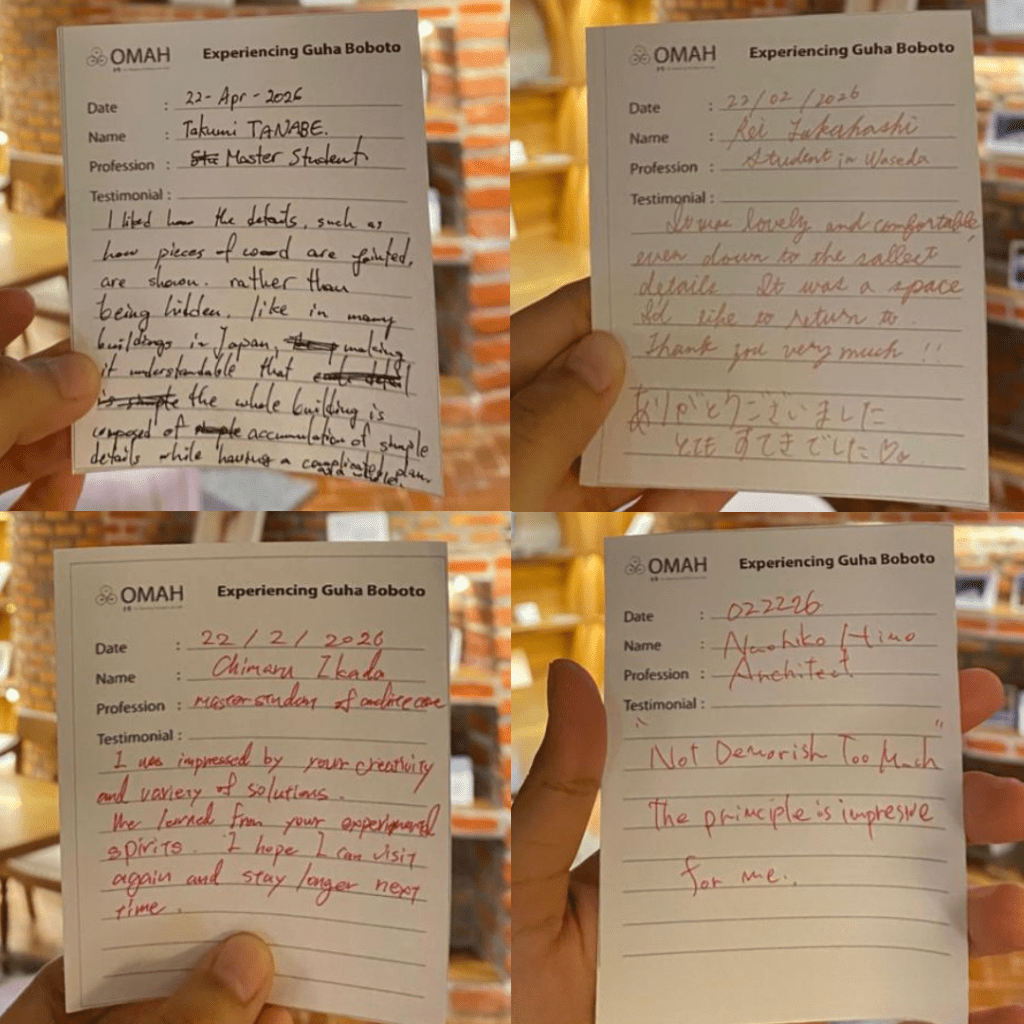 OMAH Experiencing Guha Boboto
Date : 22-Apr-2026
Name : Takumi TANABE.
Profession : Master Student
Testimonial :
I liked how the details, such as
how pieces of wood are jointed,
are shown. rather than
being hidden, like in many
buildings in Japan, making
it understandable that
the whole building is
composed of accumulation of simple
details while having a complicated plan.
OMAH Experiencing Guha Boboto
Date : 22/02/2026
Name : Rei Takahashi
Profession : Student in Waseda
Testimonial :
It was lovely and comfortable,
even down to the sallect
details. It was a space
I'd like to return to.
Thank you very much !!
ありがとうございました
とても すてきでした♡
OMAH Experiencing Guha Boboto
Date : 22 / 2 / 2026
Name : Chimaru Ikada
Profession : Master student of
Testimonial :
I was impressed by your creativity
and variety of solutions.
We learned from your experimental
spirits. I hope I can visit
again and stay longer next
time.
OMAH Experiencing Guha Boboto
Date : 022226
Name : Naohiko Hino
Profession : Architect
Testimonial :
"Not Demorish Too Much"
The principle is impresive
for me.